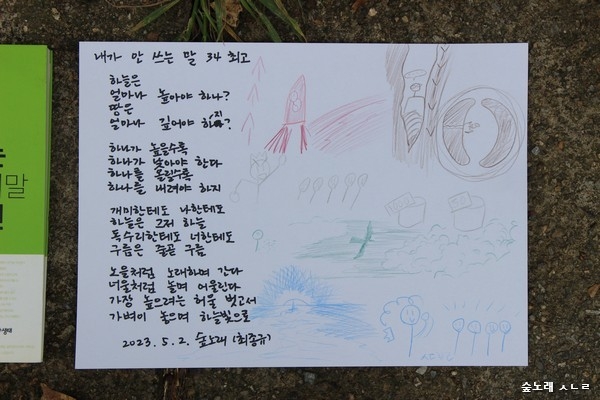 내가 안 쓰는 말 34 최고
하늘은
얼마나 높아야 하나?
땅은
얼마나 깊어야 하지?
하나가 높을수록
하나가 낮아야 한다
하나를 올릴수록
하나를 내려야 하지
개미한테도 나한테도
하늘은 그저 하늘
독수리한테도 너한테도
구름은 줄곧 구름
노을처럼 노래하며 간다
너울처럼 놀며 어울린다
가장 높으려는 허울 벗고서
가벼이 놓으며 하늘빛으로
2023. 5. 2. 숲노래 (최종규)
말
숲노래 ㅅㄴㄹ